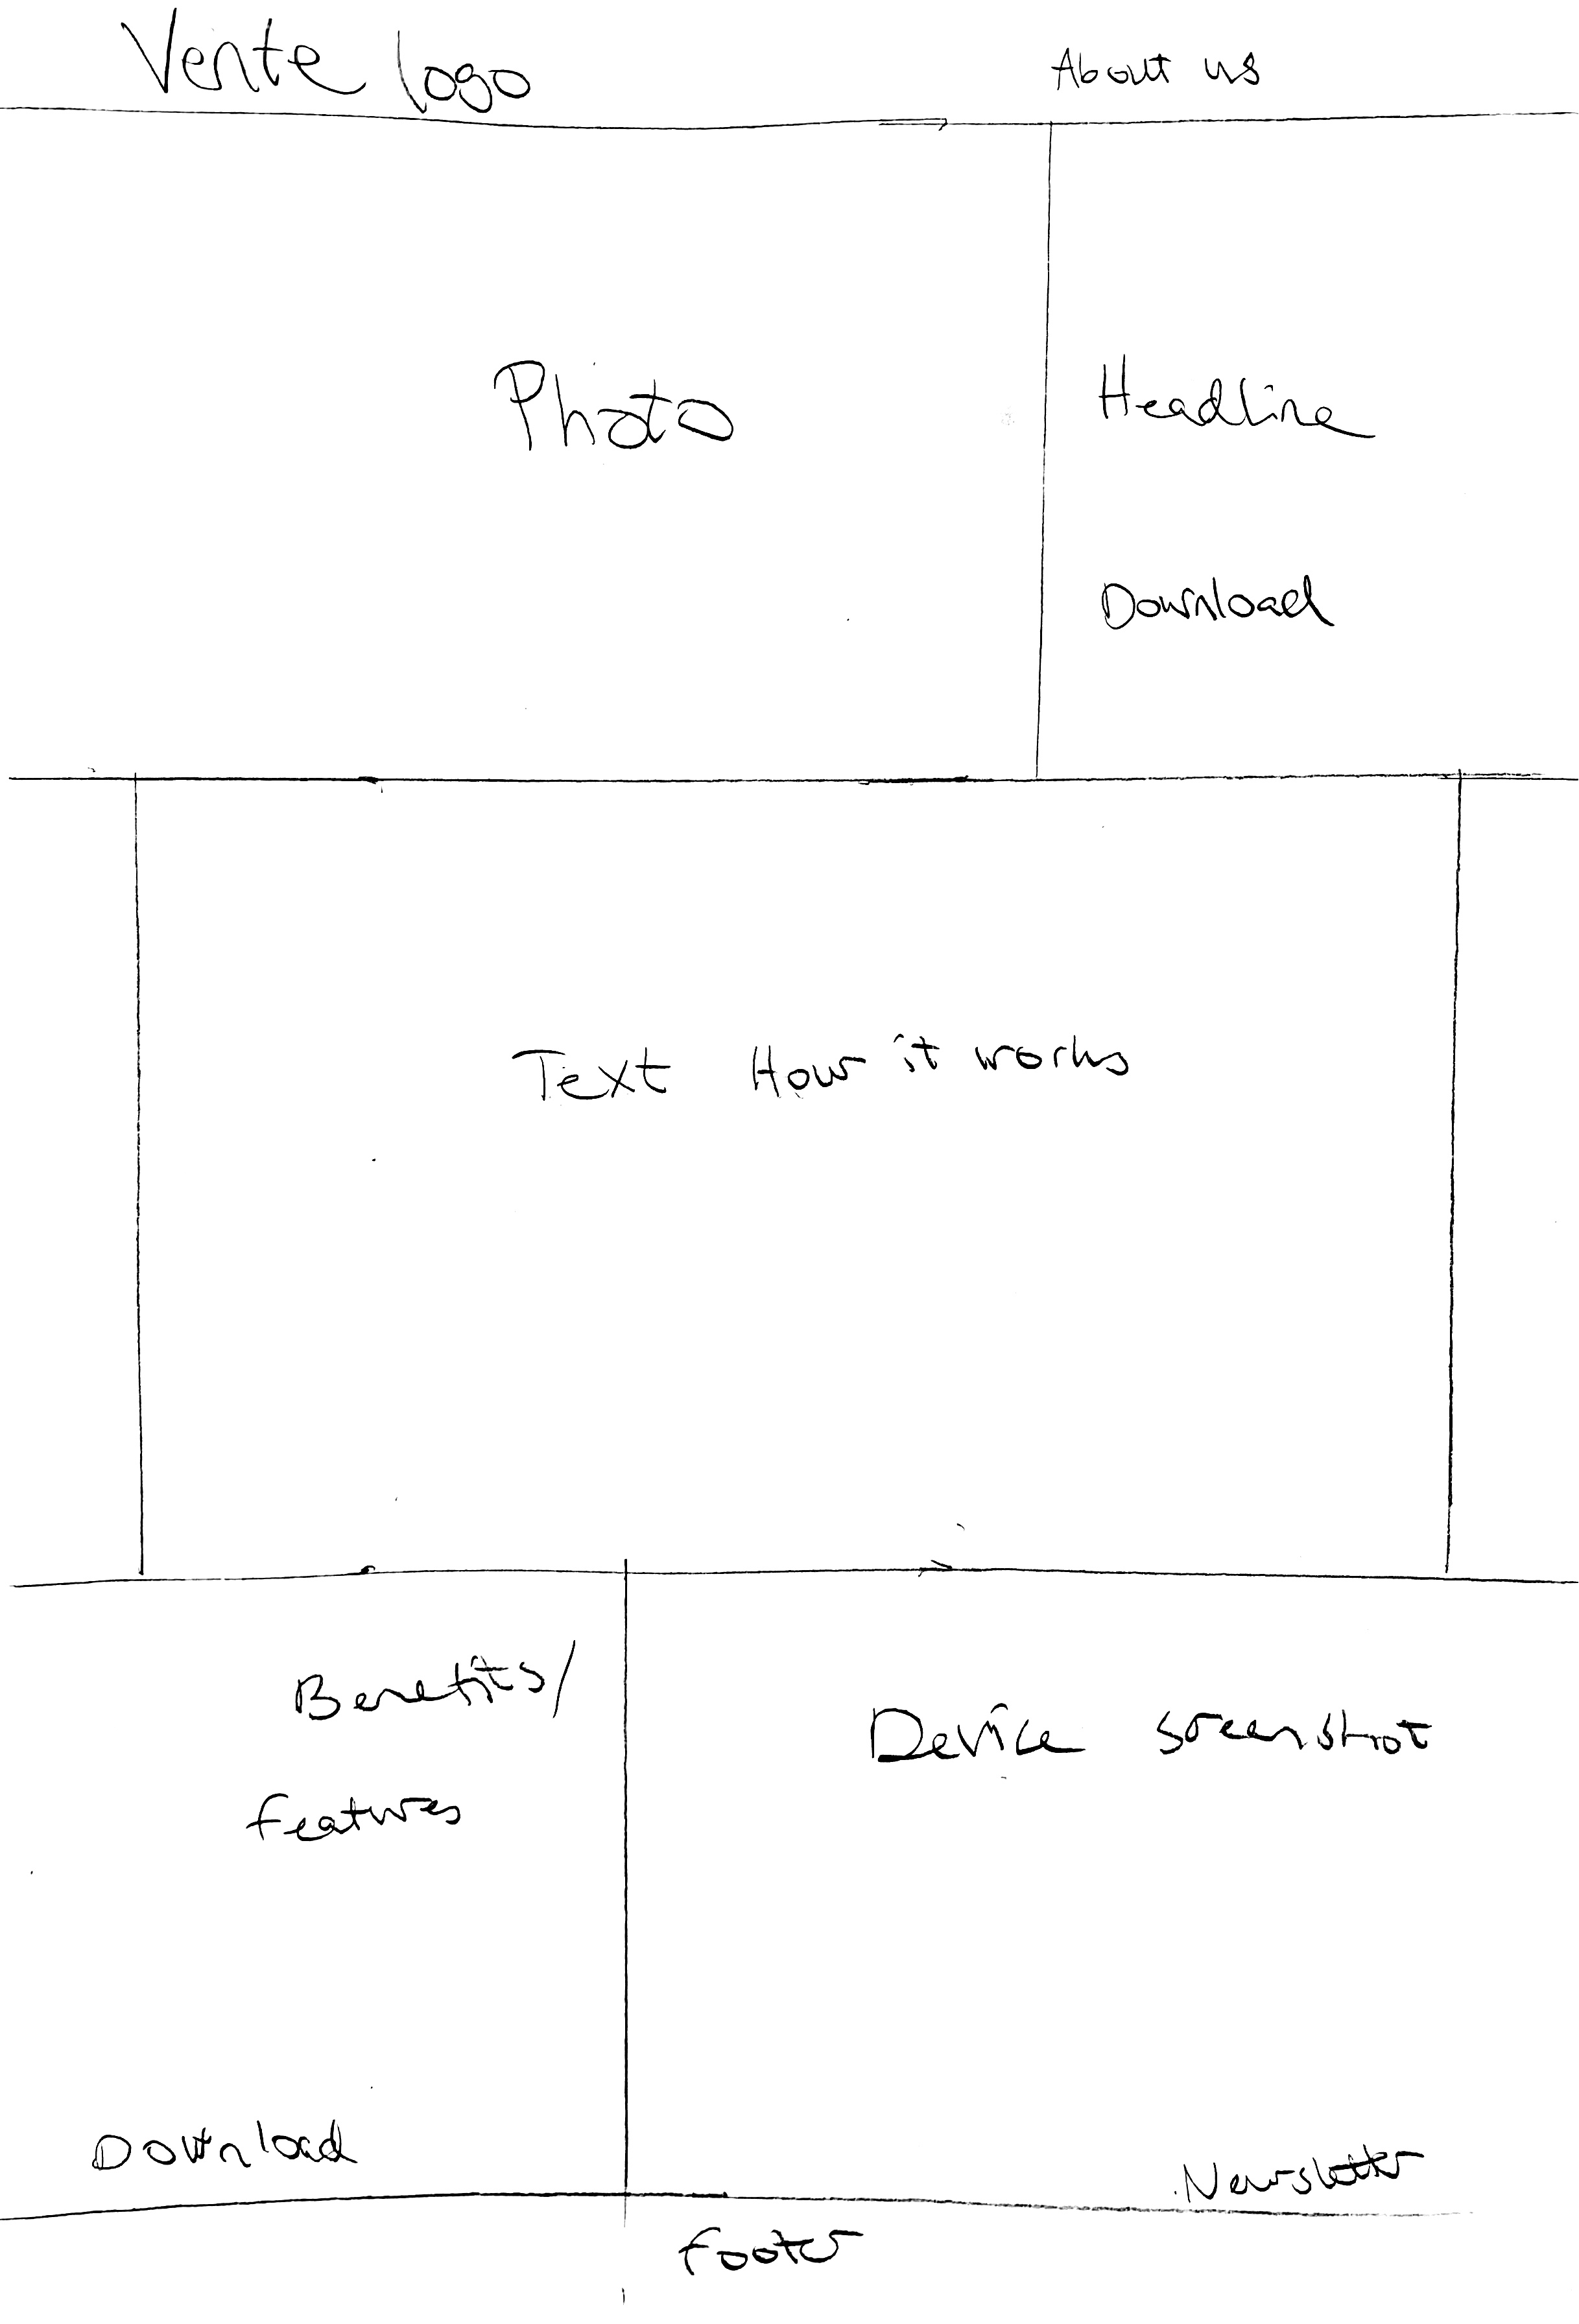 Vente logo
About us
Photo
Headline
Download
Text How it works
Benefits/
features
Device screenshot
Download
Newsletter
footer